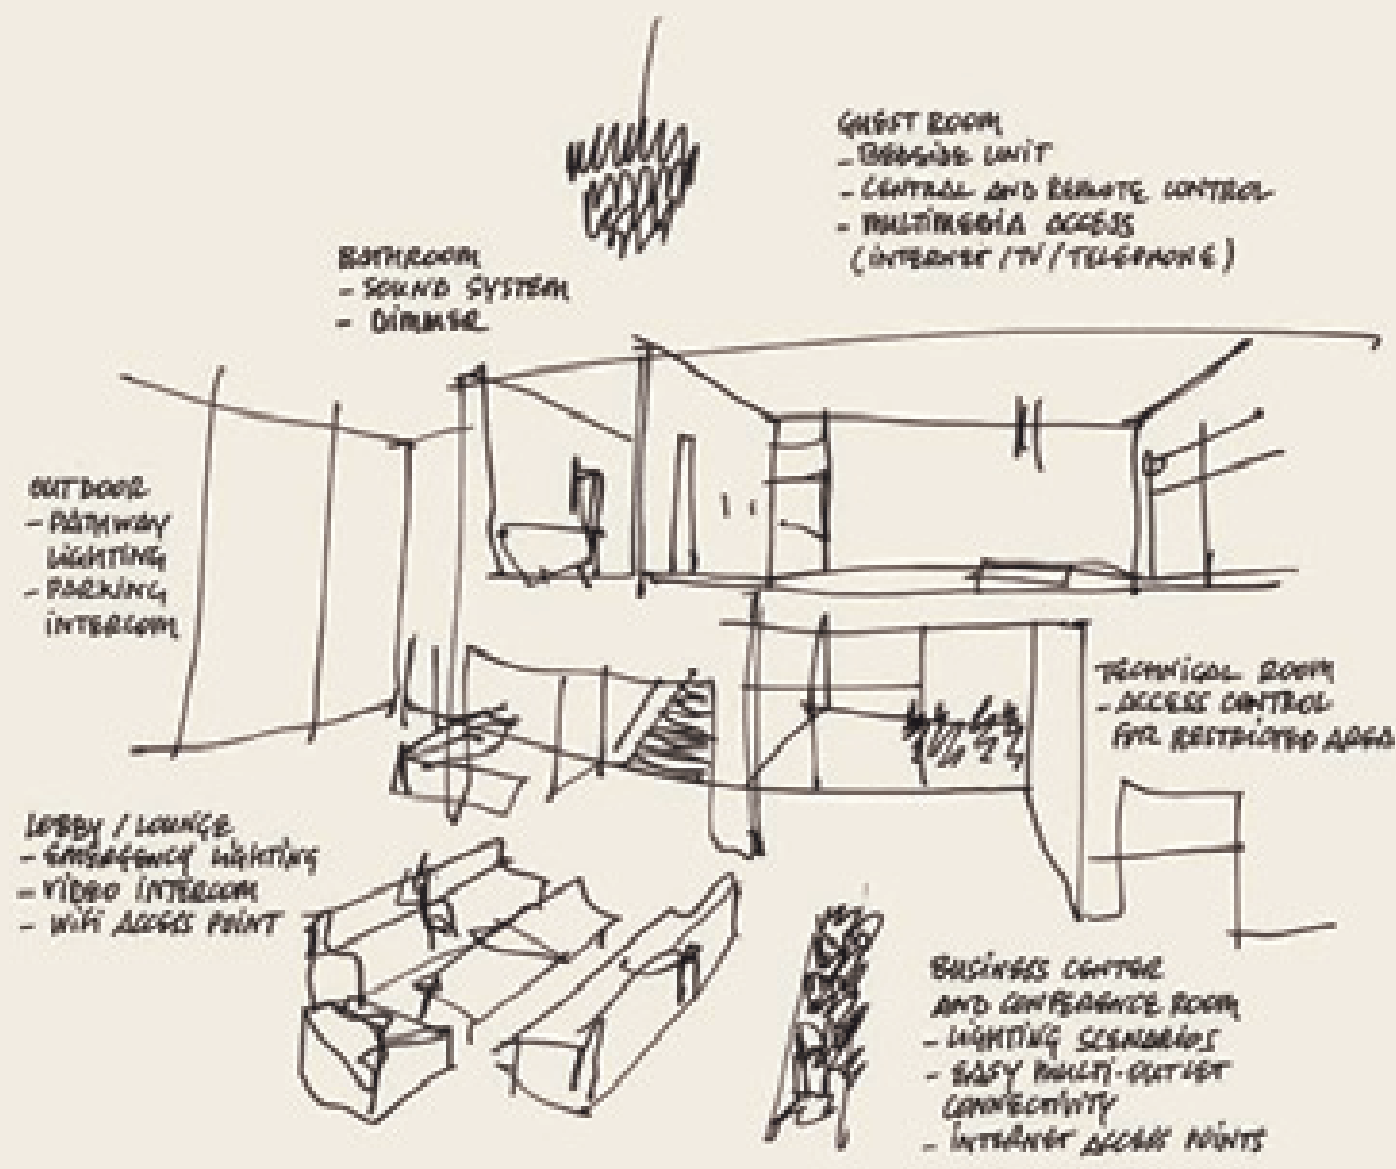 GUEST ROOM
- BEDSIDE UNIT
- CENTRAL AND REMOTE CONTROL
- MULTIMEDIA ACCESS
(INTERNET / TV / TELEPHONE)
BATHROOM
- SOUND SYSTEM
- DIMMER
OUTDOOR
- PATHWAY
LIGHTING
- PARKING
INTERCOM
TECHNICAL ROOM
- ACCESS CONTROL
FOR RESTRICTED AREA
LOBBY / LOUNGE
- EMERGENCY LIGHTING
- VIDEO INTERCOM
- WIFI ACCESS POINT
BUSINESS CENTER
AND CONFERENCE ROOM
- LIGHTING SCENARIOS
- EASY MULTI-OUTLET
CONNECTIVITY
- INTERNET ACCESS POINTS